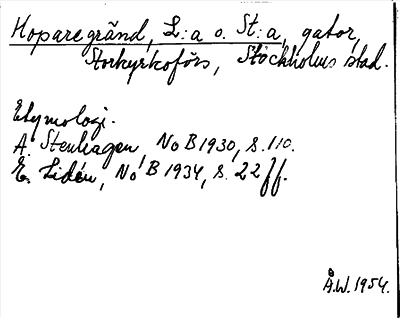 Hoparegränd, L:a o. St:a, gator,
Storkyrkoförs, Stockholms stad.
Etymologi.
A. Stenhagen, NoB 1930, s. 110.
E. Lidén, NoB 1934, s. 22 ff.
Å.W. 1954.